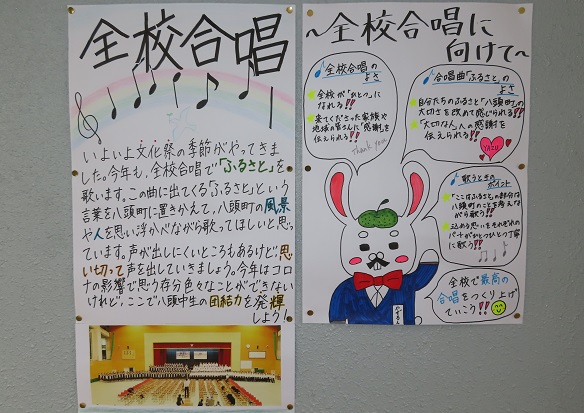 全校合唱
いよいよ文化祭の季節がやってきま
した。今年も、全校合唱で「ふるさと」を
歌います。この曲に出てくる「ふるさと」という
言葉を八頭町に置きかえて、八頭町の風景
や人を思い浮かべながら歌ってほしいと思っ
ています。声が出しにくいところもあるけど、思
い切って声を出していきましょう。今年はコロ
ナの影響で思う存分色々なことができない
けれど、ここで八頭中生の団結力を発揮
しよう!
~全校合唱に
向けて~
全校合唱の
よさ
全校が「ひとつ」に
なれる!!
来てくださった家族や
地域の皆さんに「感謝」を
伝えられる!!
Thank you
合唱曲「ふるさと」の
よさ
自分たちのふるさと「八頭町」の
大切さを改めて感じられる!!
「大切な人」への感謝を
伝えられる!!
YAZU
歌うときの
ポイント
「ここ」ふるさとの部分は
八頭町のことを考え
ながら歌う!!
込める思いをそれぞれ
のパートがひとつひとつ丁寧
に歌う!!
全校で最高の
合唱をつくり上げ
ていこう!!